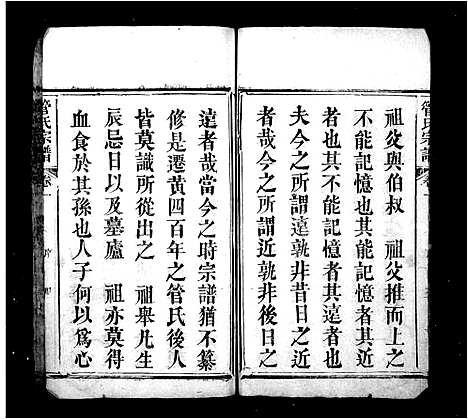 管氏宗譜
祖父與伯叔　祖父推而上之
不能記憶也其不能記憶者其近
者也其不能記憶者其遠者也
夫今之所謂遠孰非昔日之近
者哉今之所謂近孰非後日之
遠者哉當今之時宗譜猶不纂
修是遷黃四百年之管氏後人
皆莫識所從出之　祖舉凡生
辰忌日以及墓廬　祖亦莫得
血食於其孫也人子何以爲心
管氏宗譜
卷一